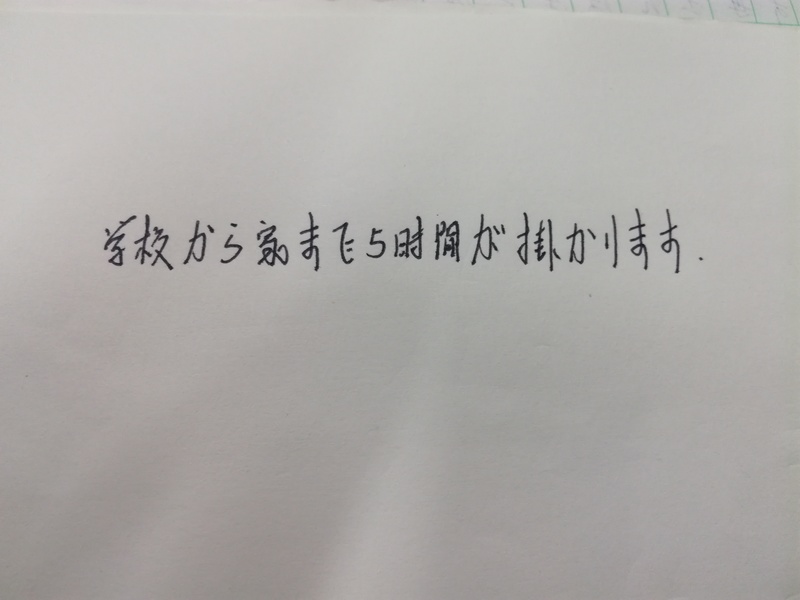 学校から家まで5時間が掛かります.